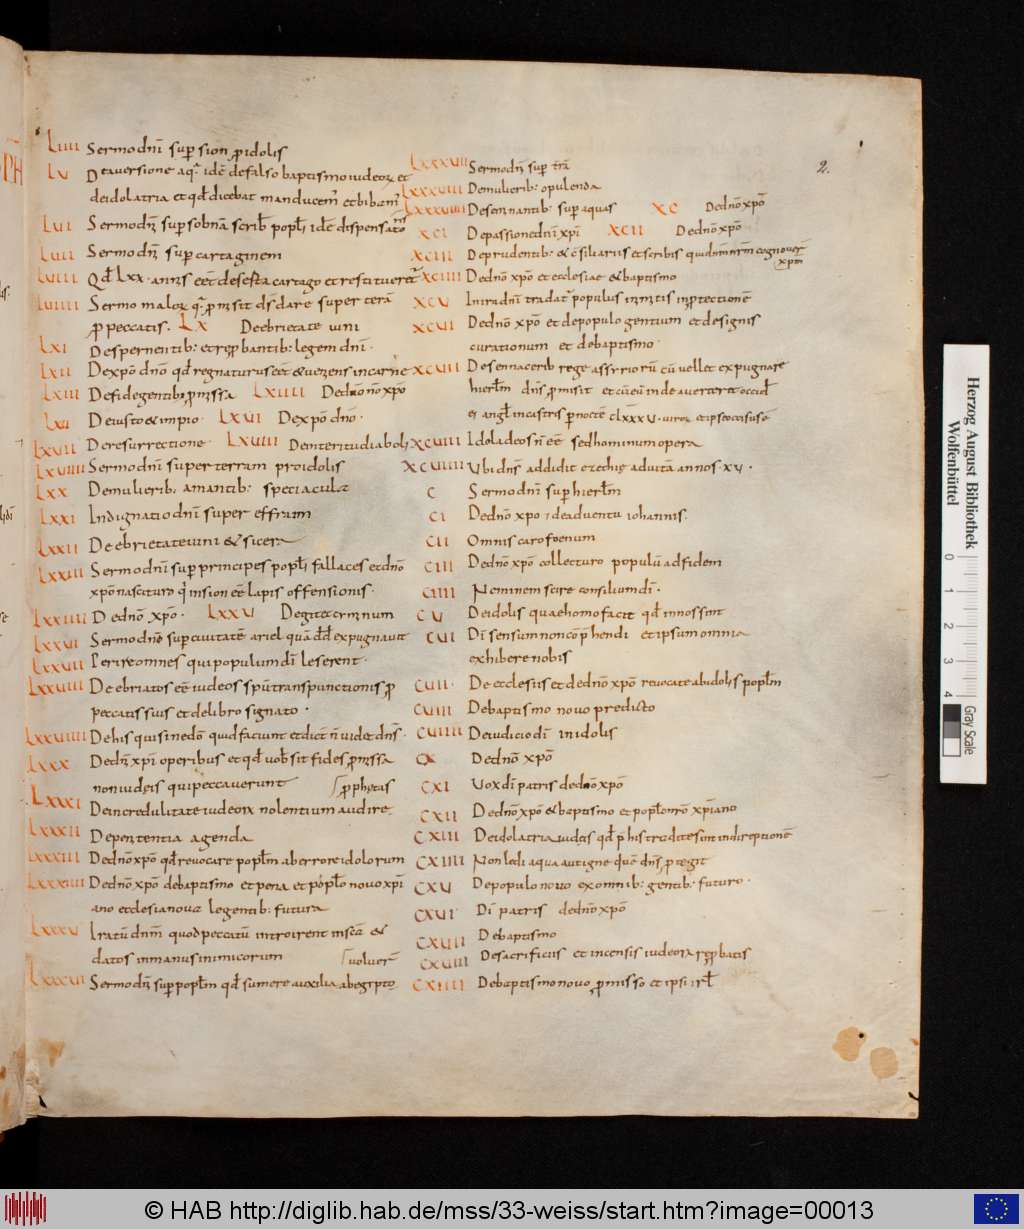 2.
LIIII Sermo dnī sup sion p idolis
LV De aversione aq̄ idē de falso baptismo iudeoꝝ et
de idolatria et qđ dicebat manducem̄ et bibam̄
LVI Sermo dnī sup sobnā scrib popłi idē dispensatorē
LVII Sermo dnī sup cartaginem
LVIII Qđ LXX · annis eēt deserta cartago et restitueret̄
LVIIII Sermo maloꝝ q̄ pmisit ds dare super terā
p peccatis. LX De ebrietate vini
LXI De spernentib: et repbantib: legem dnī ·
LXII De xpō dnō qđ regnaturus eēt & veniens in carne
LXIII De fide gentib: pmissa LXIIII De dnō nō xpō
LXV De iusto & impio · LXVI De xpō dnō ·
LXVII De resurrectione · LXVIII De interitu diaboli
LXVIIII Sermo dnī super terram pro idolis
LXX De mulierib: amantib: spectacula
LXXI Indignatio dnī super effraim
LXXII De ebrietate vini & sicera
LXXIII Sermo dnī sup principes popłi fallaces et dnō
xpō nascituro q̄ in sion eēt lapis offensionis ·
LXXIIII De dnō xpō · LXXV De gitet criminum
LXXVI Sermo dnī sup civitatē ariel quā dđ expugnavit
LXXVII Perire omnes qui populum dī leserent ·
LXXVIII De ebriatos eēt iudeos spū transpunctionis p
peccatis suis et de libro signato ·
LXXVIIII De his qui sine dō quid faciunt et dict n̄ videt dns̄ ·
LXXX De dnī xpī operibus et qđ vob sit fides pmissa
non iudeis qui peccaverunt pphetas
LXXXI De incredulitate iudeoꝝ nolentium audire
LXXXII De penitentia agenda
LXXXIII De dnō xpō qđ revocare popłm ab errore idolorum
LXXXIIII De dnō xpō de baptismo et pena et popłō novo xpī
ano ecclesia nova e legentib: futura
LXXXV Iratū dnm̄ quod peccatū introirent &
datos in manus inimicorum volver̄
LXXXVI Sermo dnī sup popłm qđ sumere auxilia ab egipto
LXXXVII Sermo dnī sup trā
LXXXVIII De mulierib: opulenta
LXXXVIIII De seminantib: sup aquas XC De dnō xpō
XCI De passione dnī xpī XCII De dnō xpō
XCIII De prudentib: & csiliarius et scribis qui dnm̄ nrm̄ cognover̄
xpm̄
XCIIII De dnō xpō et ecclesiae & baptismo
XCV In ira dnī tradat̄ populus inimitis in ptectionē
XCVI De dnō xpō et de populo gentium et de signis
curationum et de baptismo ·
XCVII De sennacerib rege assyrioru cū vellet expugnare
hierłm dns pmisit et cū eū inde averteret occid
ei angł in castris p nocte CLXXXV · viroꝝ et ipse confusus
XCVIII Idola deos n̄ eē sed hominum opera
XCVIIII Ubi dns̄ addidit ezechię ad vitā annos XV ·
C Sermo dnī sup hierłm
CI De dnō xpo ; de adventu iohannis.
CII Omnis caro foenum
CIII De dnō xpō collecturo populū ad fidem
CIIII Neminem scire consilium dī ·
CV De idolis quae homo facit qđ in nos sint
CVI Dī sensum non cōphendi et ipsum omnia
exhibere nobis
CVII · De ecclesiis et de dnō xpō revocate ab idolis popłm
CVIII De baptismo novo predicto
CVIIII De iudicio dī in idolis
CX De dnō xpō
CXI Vox dī patris de dnō xpō
CXII De dnō xpō & baptismo et popłō nrō xp̄iano
CXIII De idolatria iudeis qđ p his tradite sint in direptionē
CXIIII Non ledi aqua aut igne quē dns̄ ptegit
CXV De populo novo ex omnib: gentib: futuro ·
CXVI · Dī patris de dnō xpō
CXVII De baptismo
CXVIII De sacrificiis et incensis iudeoꝝ repbatis
CXVIIII De baptismo novo pmisso et ipsi isrł
Herzog August Bibliothek
Wolfenbüttel
0 1 2 3 4
Gray Scale
© HAB http://diglib.hab.de/mss/33-weiss/start.htm?image=00013